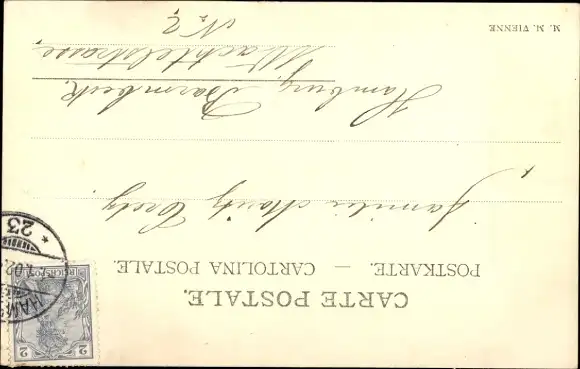 CARTE POSTALE.
POSTKARTE. — CARTOLINA POSTALE.
2
REICHSPOST
HAM
.02
* 23 *
Familie Moritz
Hamburg, Barmbeck.
Wachtelstrasse,
No 7,
M. M. VIENNE